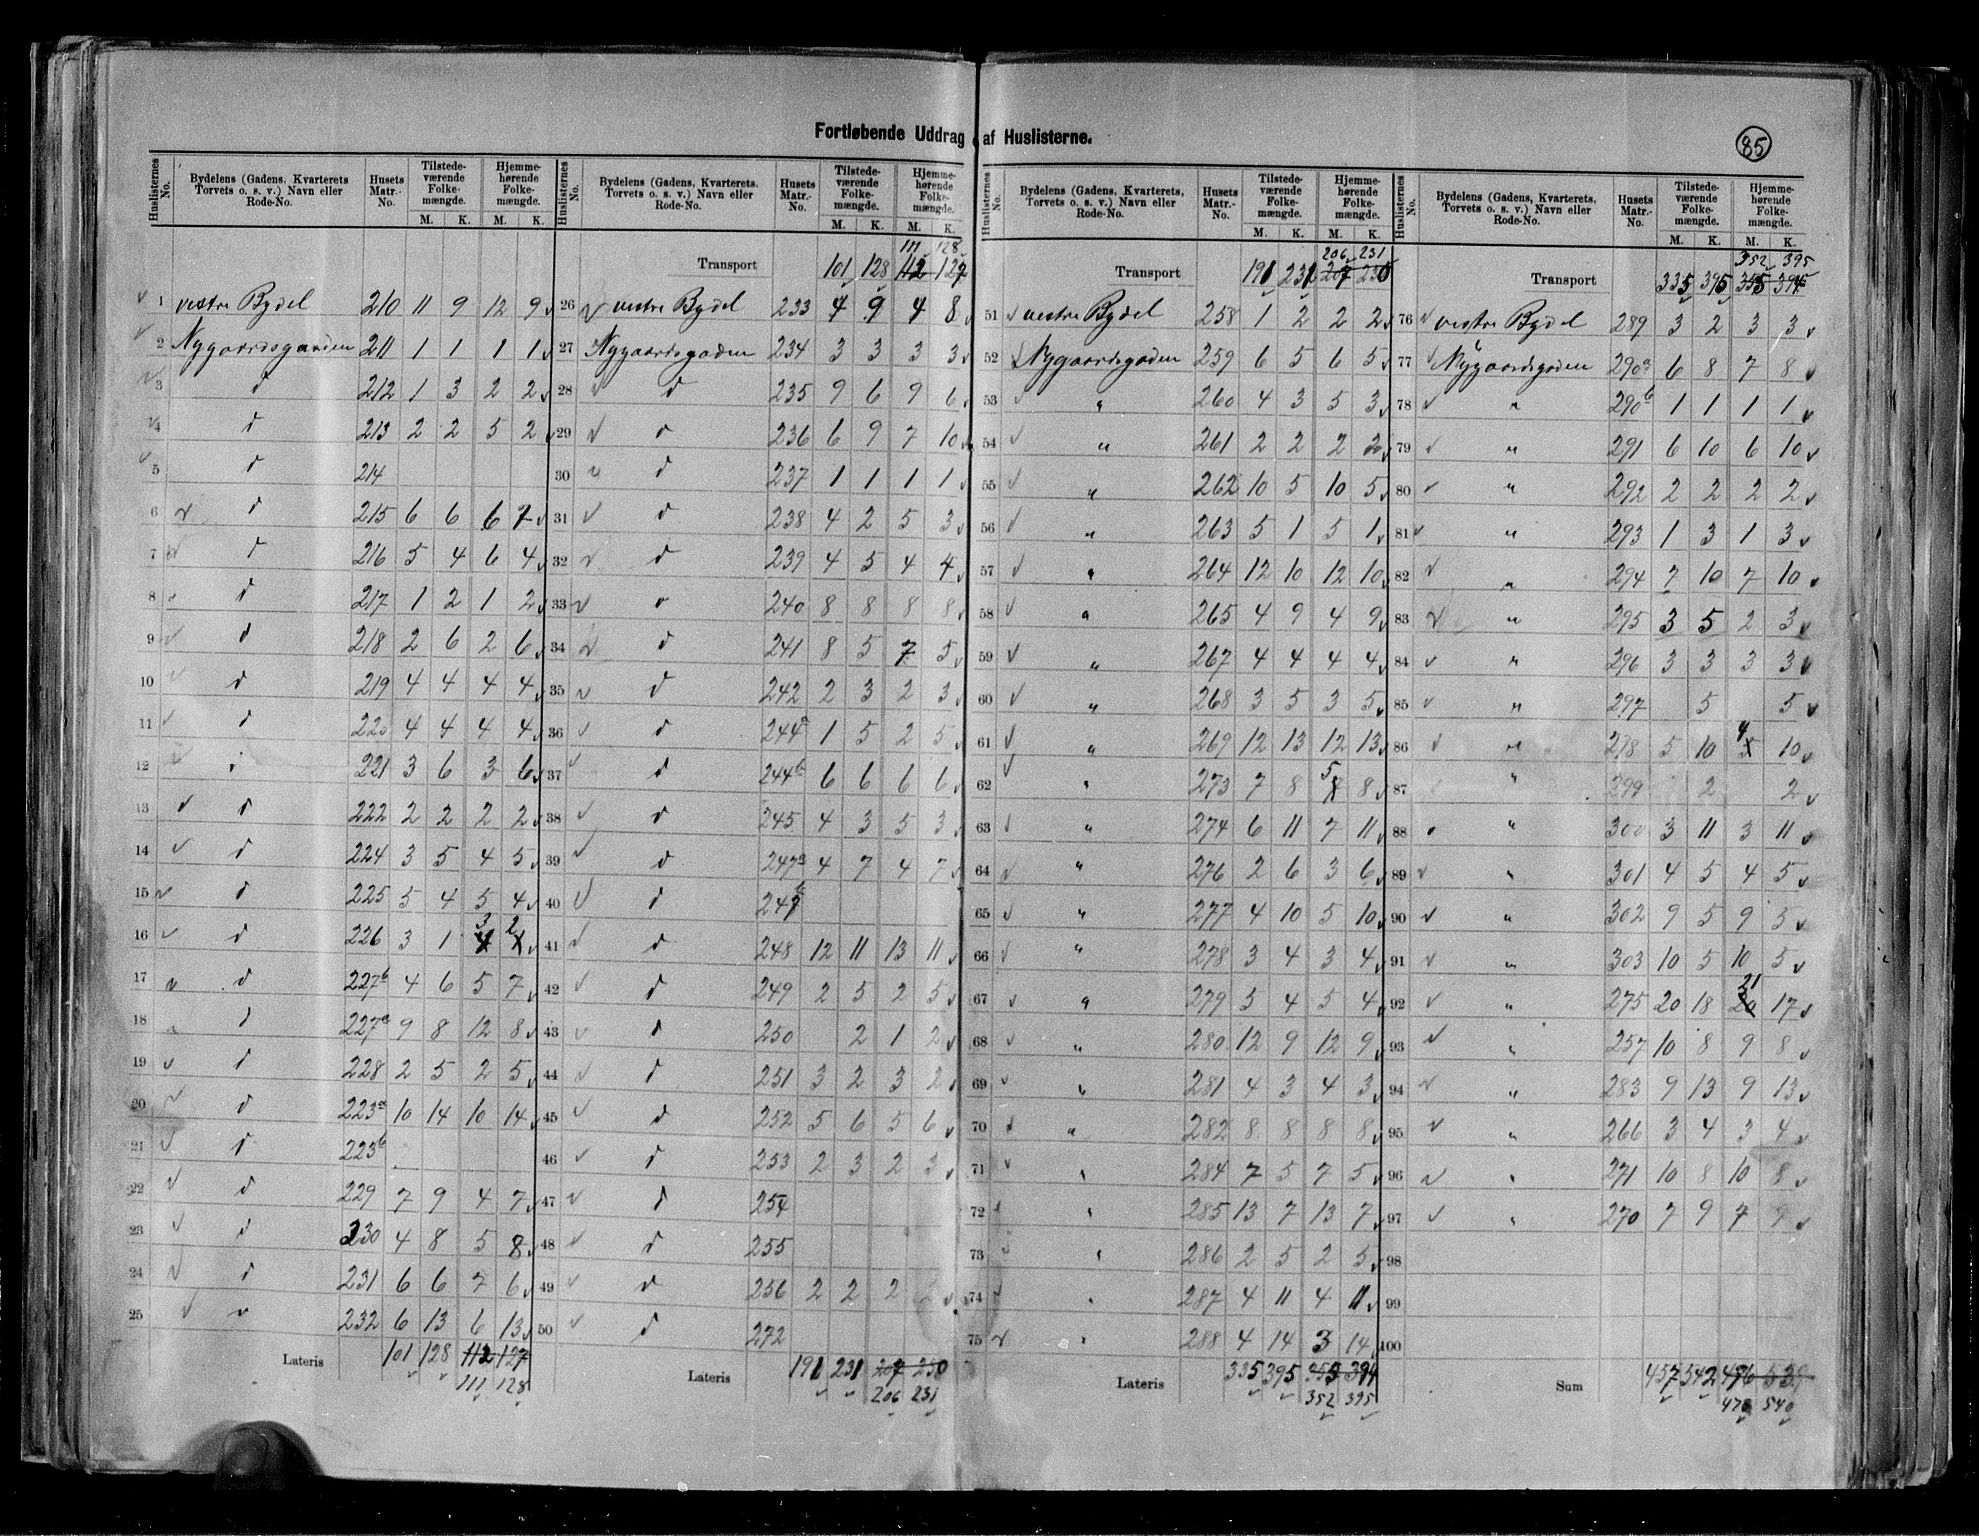 Fortløbende Uddrag af Huslisterne.
85
Huslisternes No. Bydelens (Gadens, Kvarterets, Torvets o. s. v.) Navn eller Rode-No. Husets Matr.-No. Tilstedeværende Folkemængde. M. K. Hjemmehørende Folkemængde. M. K.
1 vestre Bydel 210 11 9 12 9
2 Nygaardsgaarden 211 1 1 1 1
3 d 212 1 3 2 2
4 d 213 2 2 5 2
5 d 214
6 d 215 6 6 6 7
7 d 216 5 4 6 4
8 d 217 1 2 1 2
9 d 218 2 6 2 6
10 d 219 4 4 4 4
11 d 220 4 4 4 4
12 d 221 3 6 3 6
13 d 222 2 2 2 2
14 d 224 3 5 4 5
15 d 225 5 4 5 4
16 d 226 3 1 3 2
17 d 227b 4 6 5 7
18 d 227a 9 8 12 8
19 d 228 2 5 2 5
20 d 223a 10 14 10 14
21 d 223b
22 d 229 7 9 4 7
23 d 230 4 8 5 8
24 d 231 6 6 7 6
25 d 232 6 13 6 13
Lateris 101 128 112 127
111 128
Huslisternes No. Bydelens (Gadens, Kvarterets, Torvets o. s. v.) Navn eller Rode-No. Husets Matr.-No. Tilstedeværende Folkemængde. M. K. Hjemmehørende Folkemængde. M. K.
111 128
Transport 101 128 112 127
26 vestre Bydel 233 4 9 4 8
27 Nygaardsgaden 234 3 3 3 3
28 d 235 9 6 9 6
29 d 236 6 9 7 10
30 d 237 1 1 1 1
31 d 238 4 2 5 3
32 d 239 4 5 4 4
33 d 240 8 8 8 8
34 d 241 8 5 7 5
35 d 242 2 3 2 3
36 d 244a 1 5 2 5
37 d 244b 6 6 6 6
38 d 245 4 3 5 3
39 d 247a 4 7 4 7
40 d 247b
41 d 248 12 11 13 11
42 d 249 2 5 2 5
43 d 250 2 1 2
44 d 251 3 2 3 2
45 d 252 5 6 5 6
46 d 253 2 3 2 3
47 d 254
48 d 255
49 d 256 2 2 2
50 d 272
Lateris 191 231 207 230
206 231
Huslisternes No. Bydelens (Gadens, Kvarterets, Torvets o. s. v.) Navn eller Rode-No. Husets Matr.-No. Tilstedeværende Folkemængde. M. K. Hjemmehørende Folkemængde. M. K.
206 231
Transport 191 231 207 230
51 vestre Bydel 258 1 2 2 2
52 Nygaardsgaden 259 6 5 6 5
53 " 260 4 3 5 3
54 " 261 2 2 2 2
55 " 262 10 5 10 5
56 " 263 5 1 5 1
57 " 264 12 10 12 10
58 " 265 4 9 4 9
59 " 267 4 4 4 4
60 " 268 3 5 3 5
61 " 269 12 13 12 13
62 " 273 7 8 5 8
63 " 274 6 11 7 11
64 " 276 2 6 3 6
65 " 277 4 10 5 10
66 " 278 3 4 3 4
67 " 279 5 4 5 4
68 " 280 12 9 12 9
69 " 281 4 3 4 3
70 " 282 8 8 8 8
71 " 284 7 5 7 5
72 " 285 13 7 13 7
73 " 286 2 5 2 5
74 " 287 4 11 4 11
75 " 288 4 14 3 14
Lateris 335 395 355 394
352 395
Huslisternes No. Bydelens (Gadens, Kvarterets, Torvets o. s. v.) Navn eller Rode-No. Husets Matr.-No. Tilstedeværende Folkemængde. M. K. Hjemmehørende Folkemængde. M. K.
352 395
Transport 335 395 355 394
76 vestre Bydel 289 3 2 3 3
77 Nygaardsgaden 290a 6 8 7 8
78 " 290b 1 1 1 1
79 " 291 6 10 6 10
80 " 292 2 2 2 2
81 " 293 1 3 1 3
82 " 294 7 10 7 10
83 " 295 3 5 2 3
84 " 296 3 3 3 3
85 " 297 5 5
86 " 298 5 10 4 10
87 " 299 2 2
88 " 300 3 11 3 11
89 " 301 4 5 4 5
90 " 302 9 5 9 5
91 " 303 10 5 10 5
92 " 275 20 18 21 17
93 " 257 10 8 9 8
94 " 283 9 13 9 13
95 " 266 3 4 3 4
96 " 271 10 8 10 8
97 " 270 7 9 7 9
98
99
100
Sum 457 542 476 539
473 540